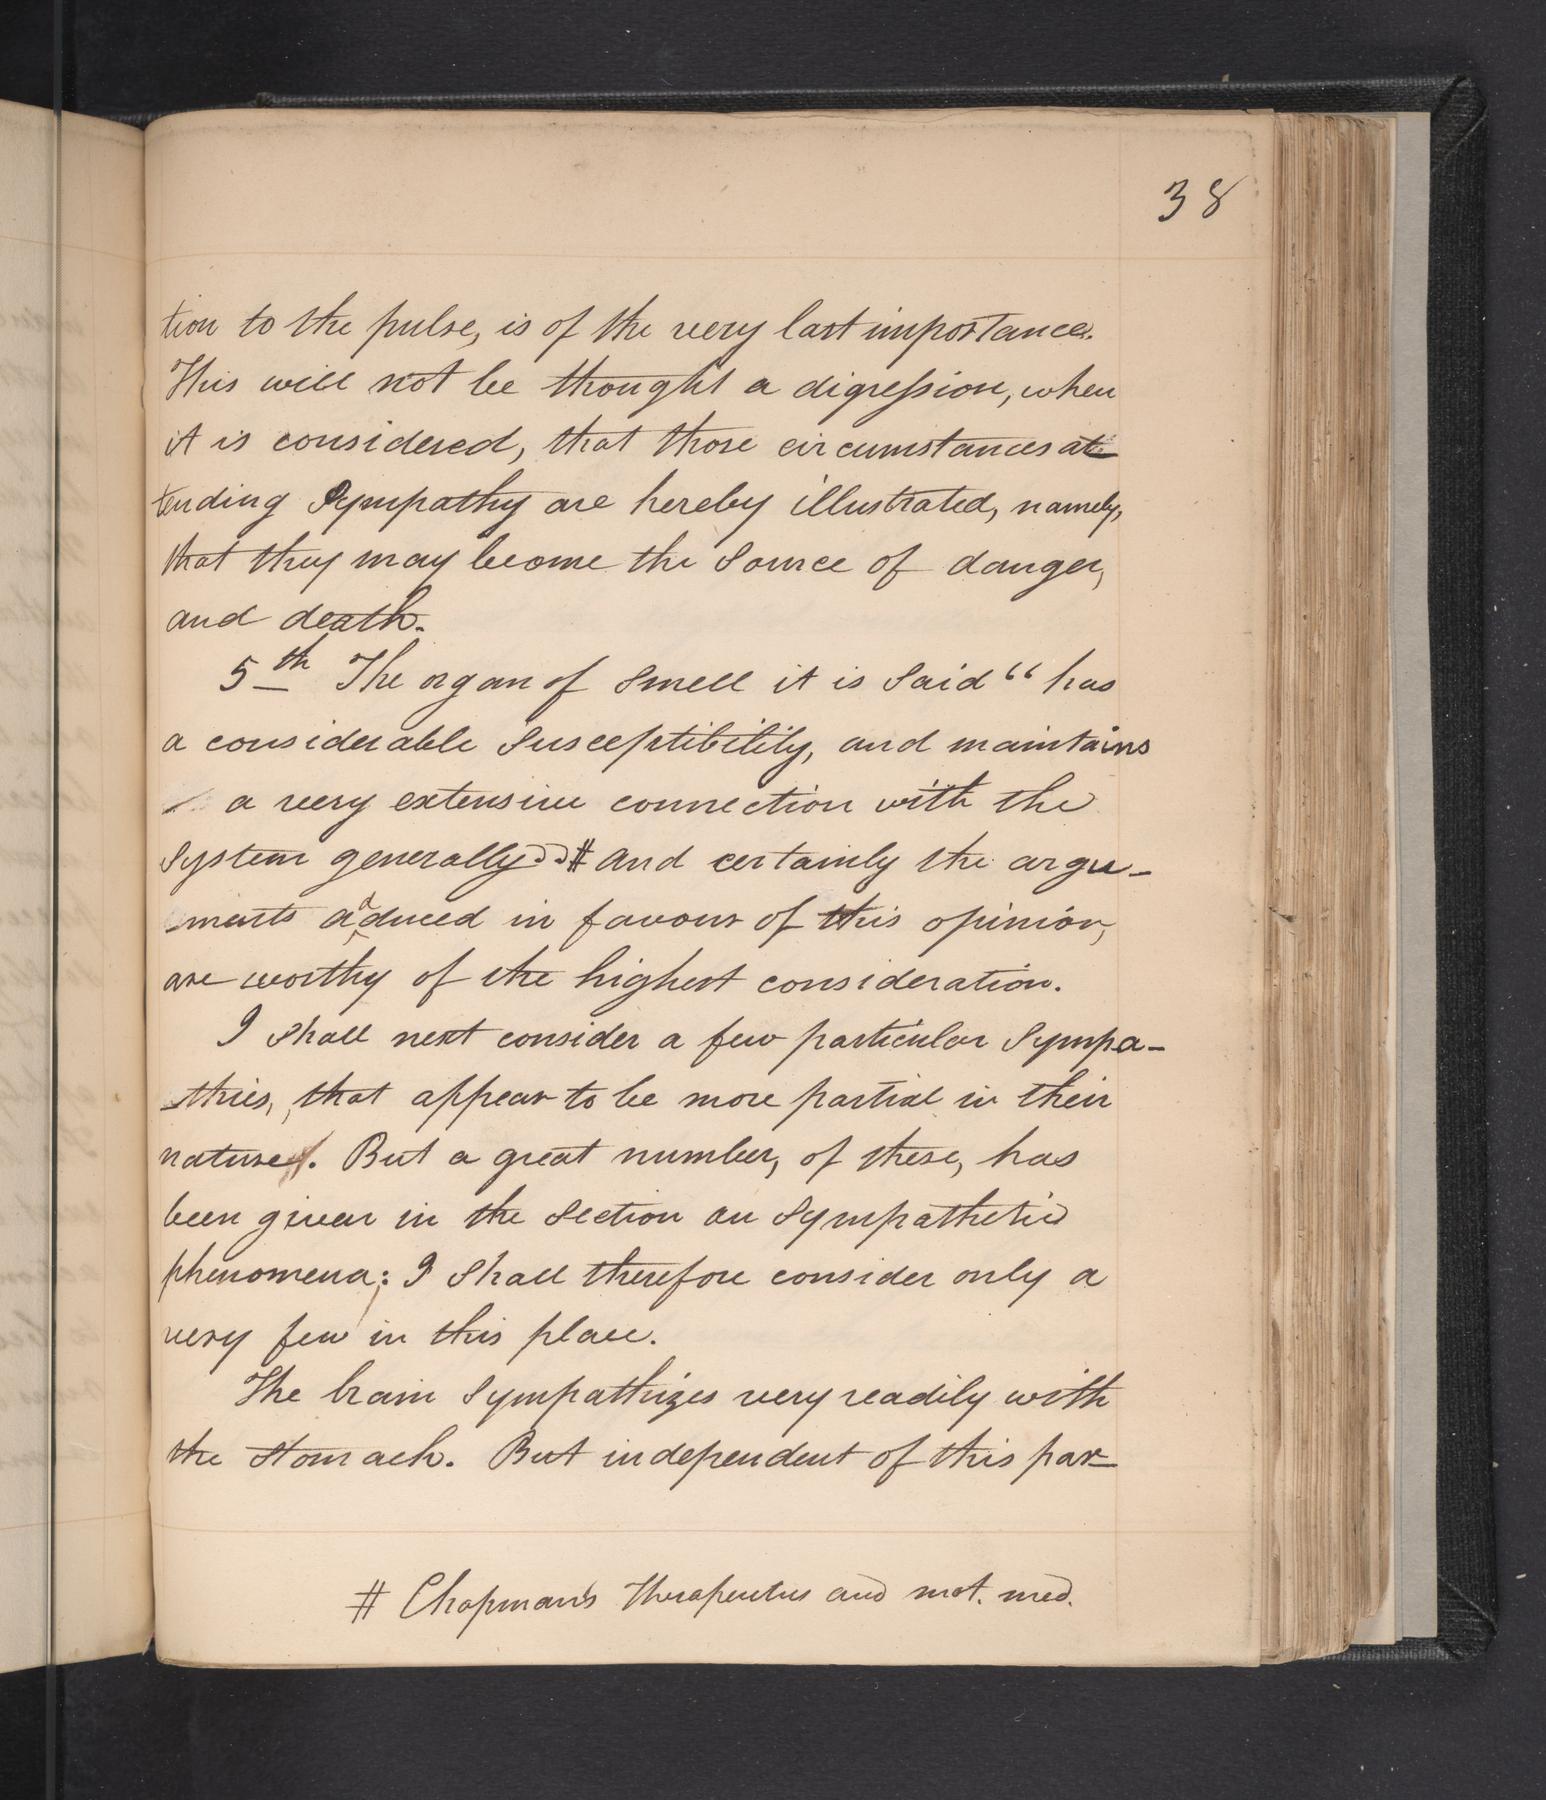 38
tion to the pulse, is of the very last importance.
This will not be thought a digression, when
it is considered, that those circumstances at-
tending Sympathy are hereby illustrated, namely,
that they may become the source of danger,
and death.
5th The organ of smell it is said "has
a considerable susceptibility, and maintains
a very extensive connection with the
system generally"# and certainly the argu-
ments adduced in favour of this opinion,
are worthy of the highest consideration.
I shall next consider a few particular sympa-
thies, that appear to be more partial in their
nature. But a great number, of these, has
been given in the section on sympathetic
phenomena; I shall therefore consider only a
very few in this place.
The brain sympathizes very readily with
the stomach. But independent of this par-
# Chapman's Therapeutics and mat. med.